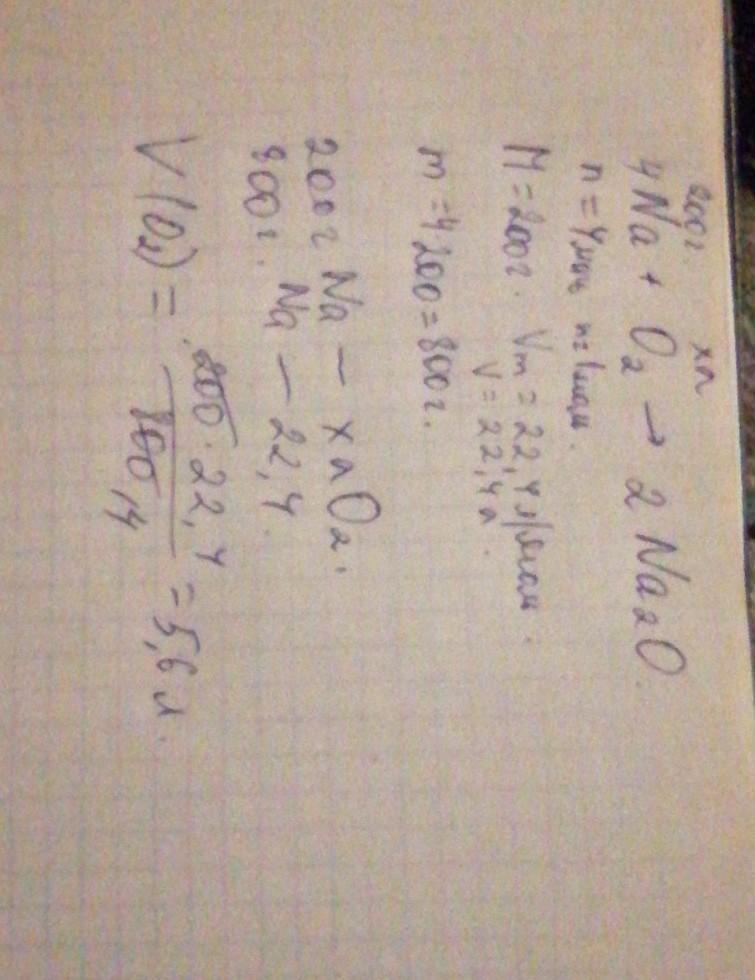 200г. хл
4Na + O₂ → 2Na₂O
n=4моль n=1моль.
M=200г. Vm=22,4л/моль.
V=22,4л.
m=4·200=800г.
200г Na — хл O₂.
800г. Na — 22,4.
V(O₂) = 200·22,4 / 800 4 = 5,6 л.